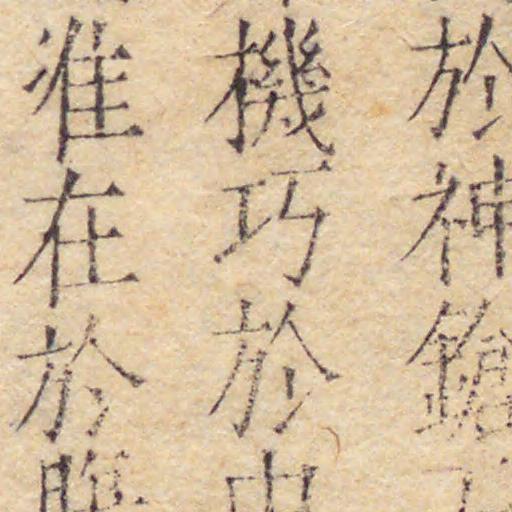 於神鎗
機巧於
准在於